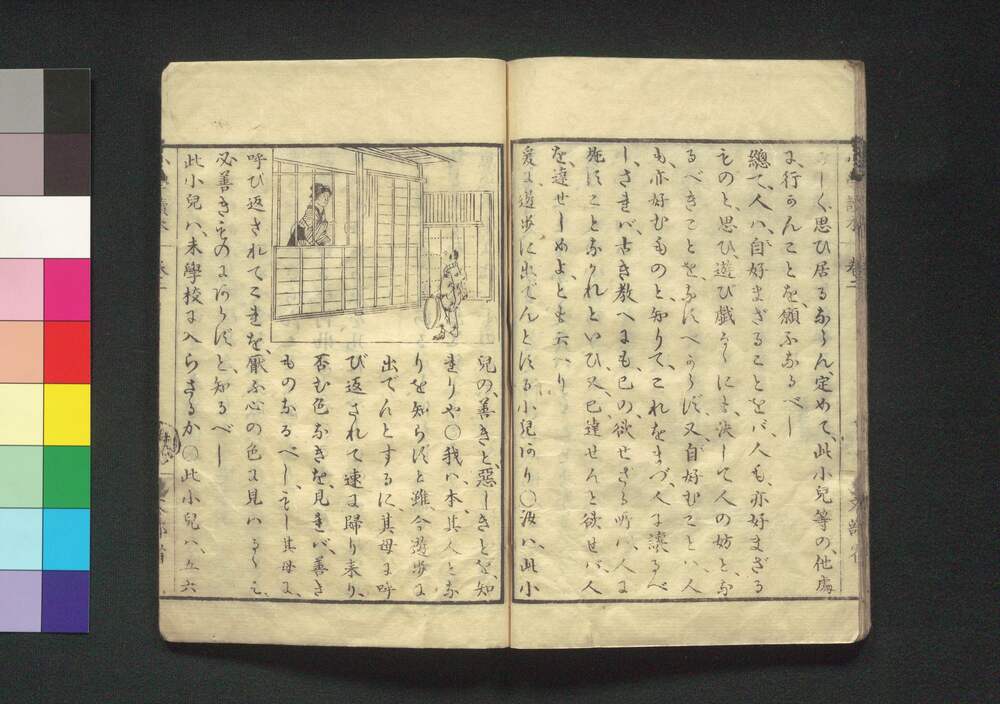 しく思ひ居るならん、定めて、此小兒等の、他處
に、行かんことを、願ふなるべし
總て、人ハ、自好まざることをバ、人も、亦好まざる
ものと、思ひ遊び戯るゝにも、決して人の妨と、な
るべきことを、なすべからず、又、自好むことハ、人
も、亦好むものと、知りて、これをまづ、人に讓るべ
し、されバ、古き教へにも、己の、欲せざる所ハ、人に
施すこと、なかれといひ、又、己達せんと欲せバ、人
を、達せしめよ、とも云へり
爰に遊歩に出でんとする小兒あり〇汝ハ、此小
兒の、善きと、惡しきとを、知
れりや〇我ハ、本、其人とな
りを、知らずと雖、今、遊歩に
出でんとするに、其母に呼
び返されて速に歸り來り、
否む色なきを、見れバ、善き
ものなるべし、もし其母に、
呼び返されてこれを、厭ふ心の色に見ハるゝハ、
必善きものにあらずと、知るべし
此小兒ハ、未學校にへらざるか〇此小兒ハ、五六